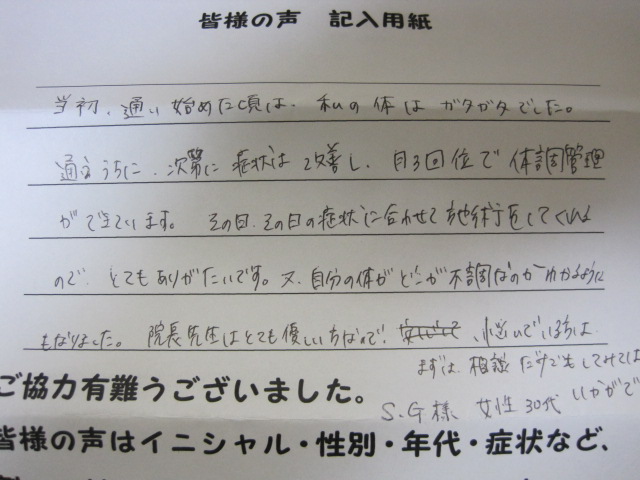 皆様の声　記入用紙
当初、通い始めた頃は、私の体はガタガタでした。
通ううちに、次第に症状は改善し、月3回位で体調管理
ができています。その日、その日の症状に合わせて施術をしてくれる
ので、とてもありがたいです。又、自分の体がどこが不調なのかわかるように
もなりました。院長先生はとても優しい方なので、、悩んでいる方は
まずは、相談だけでもしてみては
いかがで
S.G様　女性　30代
ご協力有難うございました。
皆様の声はイニシャル・性別・年代・症状など、